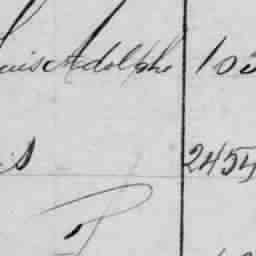 Louis Adolphe 103
is 2454
P